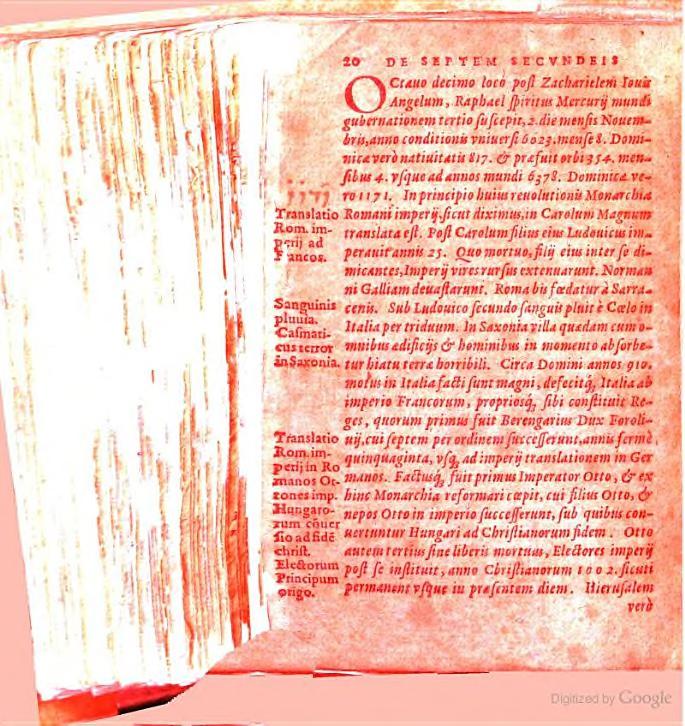 20 DE SEPTEM SECVNDEIS
OCtauo decimo loco post Zacharielem Iouis
Angelum, Raphael spiritus Mercurij mundi
gubernationem tertio suscepit, 2. die mensis Nouem-
bris, anno conditionis vniuersi 6023. mense 8. Domi-
nicæ verò natiuitatis 817. & præfuit orbi 354. men-
sibus 4. vsque ad annos mundi 6378. Dominicæ ve-
rò 1171. In principio huius reuolutionis Monarchia
Romani imperij, sicut diximus, in Carolum Magnum
translata est. Post Carolum filius eius Ludouicus im-
perauit annis 25. Quo mortuo, filij eius inter se di-
micantes, Imperij vires rursus extenuarunt. Norman
ni Galliam deuastarunt. Roma bis fœdatur à Sarra-
cenis. Sub Ludouico secundo sanguis pluit è Cœlo in
Italia per triduum. In Saxonia villa quædam cum o-
mnibus ædificijs & hominibus in momento absorbe-
tur hiatu terræ horribili. Circa Domini annos 910.
motus in Italia facti sunt magni, defecitq́; Italia ab
imperio Francorum, propriosq́; sibi constituit Re-
ges, quorum primus fuit Berengarius Dux Foroli-
uij, cui septem per ordinem successerunt, annis fermè
quinquaginta, vsq́; ad imperij translationem in Ger
manos. Factusq́; fuit primus Imperator Otto, & ex
hinc Monarchia reformari cœpit, cui filius Otto, &
nepos Otto in imperio successerunt, sub quibus con-
uertuntur Hungari ad Christianorum fidem. Otto
autem tertius sine liberis mortuus, Electores imperij
post se instituit, anno Christianorum 1002. sicuti
permanent vsque in præsentem diem. Hierusalem
verò
Translatio
Rom. im-
perij ad
Francos.
Sanguinis
pluuia.
Casmati-
cus terror
in Saxonia.
Translatio
Rom. im-
perij in Ro
manos Ot-
tones imp.
Hungaro-
rum cõuer
sio ad fidẽ
christ.
Electorum
Principum
origo.
Digitized by Google